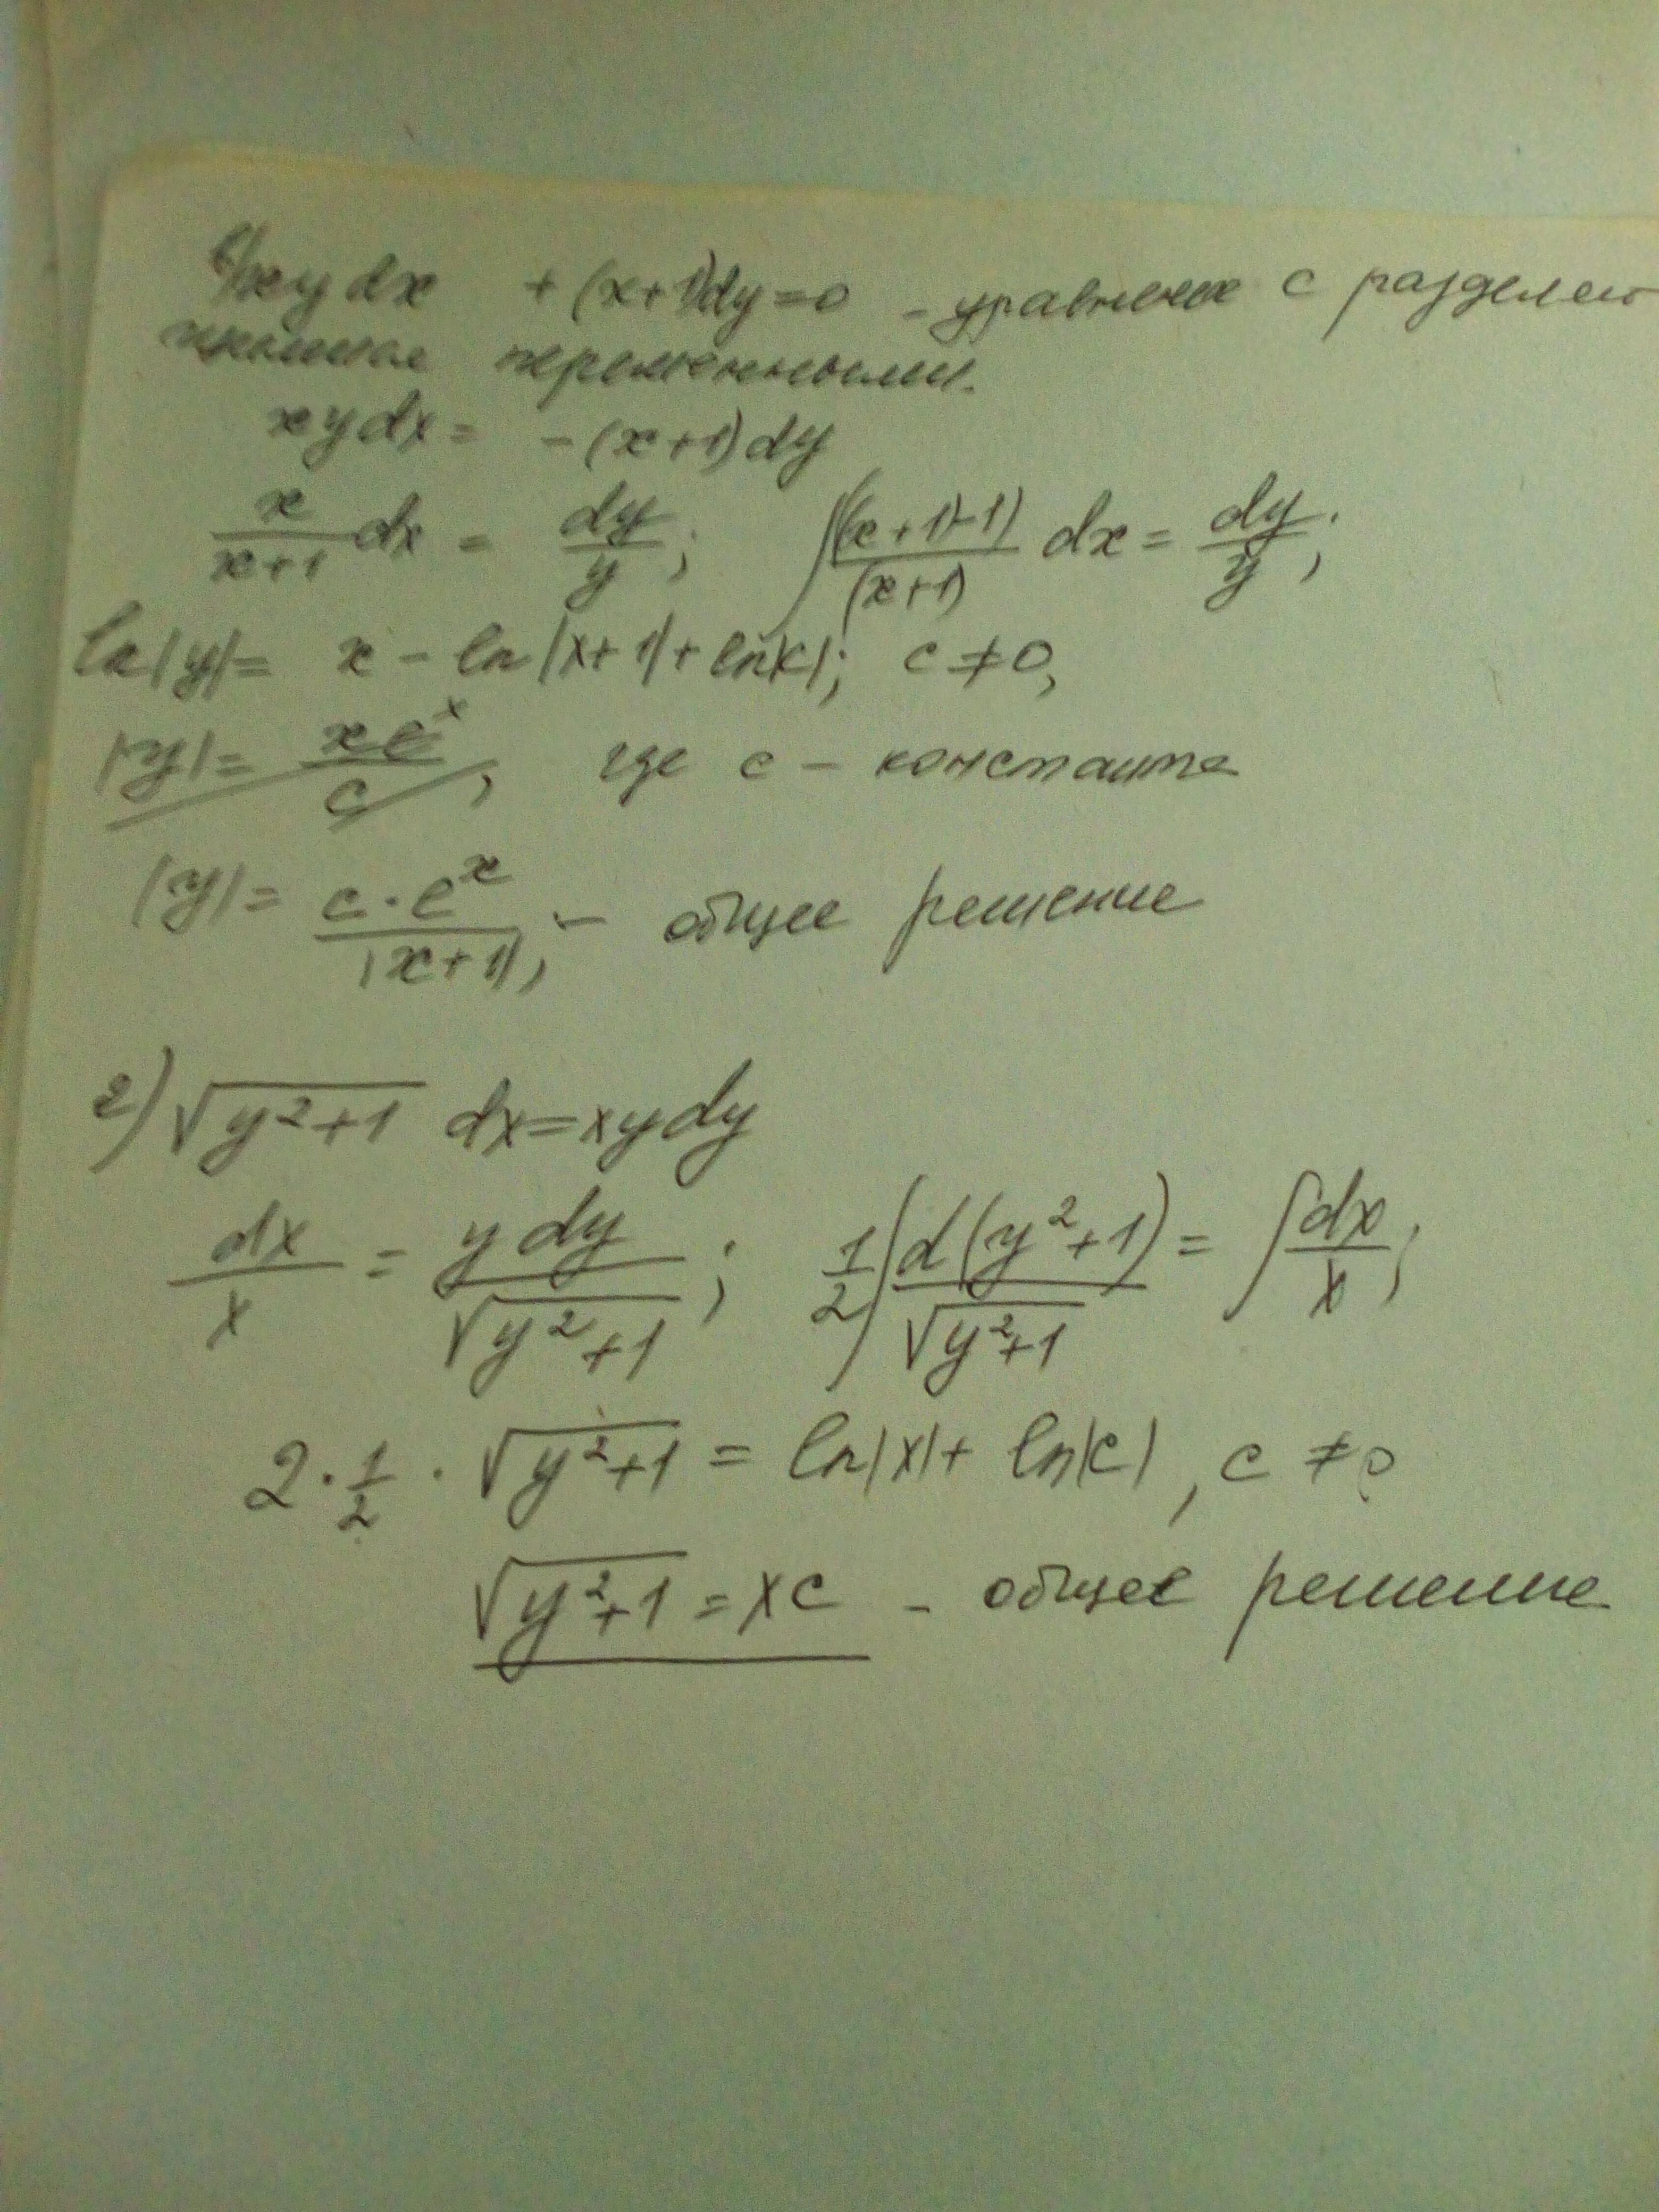 1) xy dx + (x+1)dy=0 - уравнение с разделяю
щимися переменными.
xy dx = -(x+1)dy
x/(x+1) dx = dy/y; ∫((x+1)-1)/(x+1) dx = dy/y;
ln|y|= x - ln|x+1|+ln|c|; c≠0,
|y|= xe^x/c, где c - константа
|y|= c·e^x/|x+1|, - общее решение
2) √(y²+1) dx=xydy
dx/x = y dy/√(y²+1); 1/2 ∫d(y²+1)/√(y²+1) = ∫dx/x;
2·1/2·√(y²+1) = ln|x|+ ln|c|, c≠0
√(y²+1) = xc - общее решение